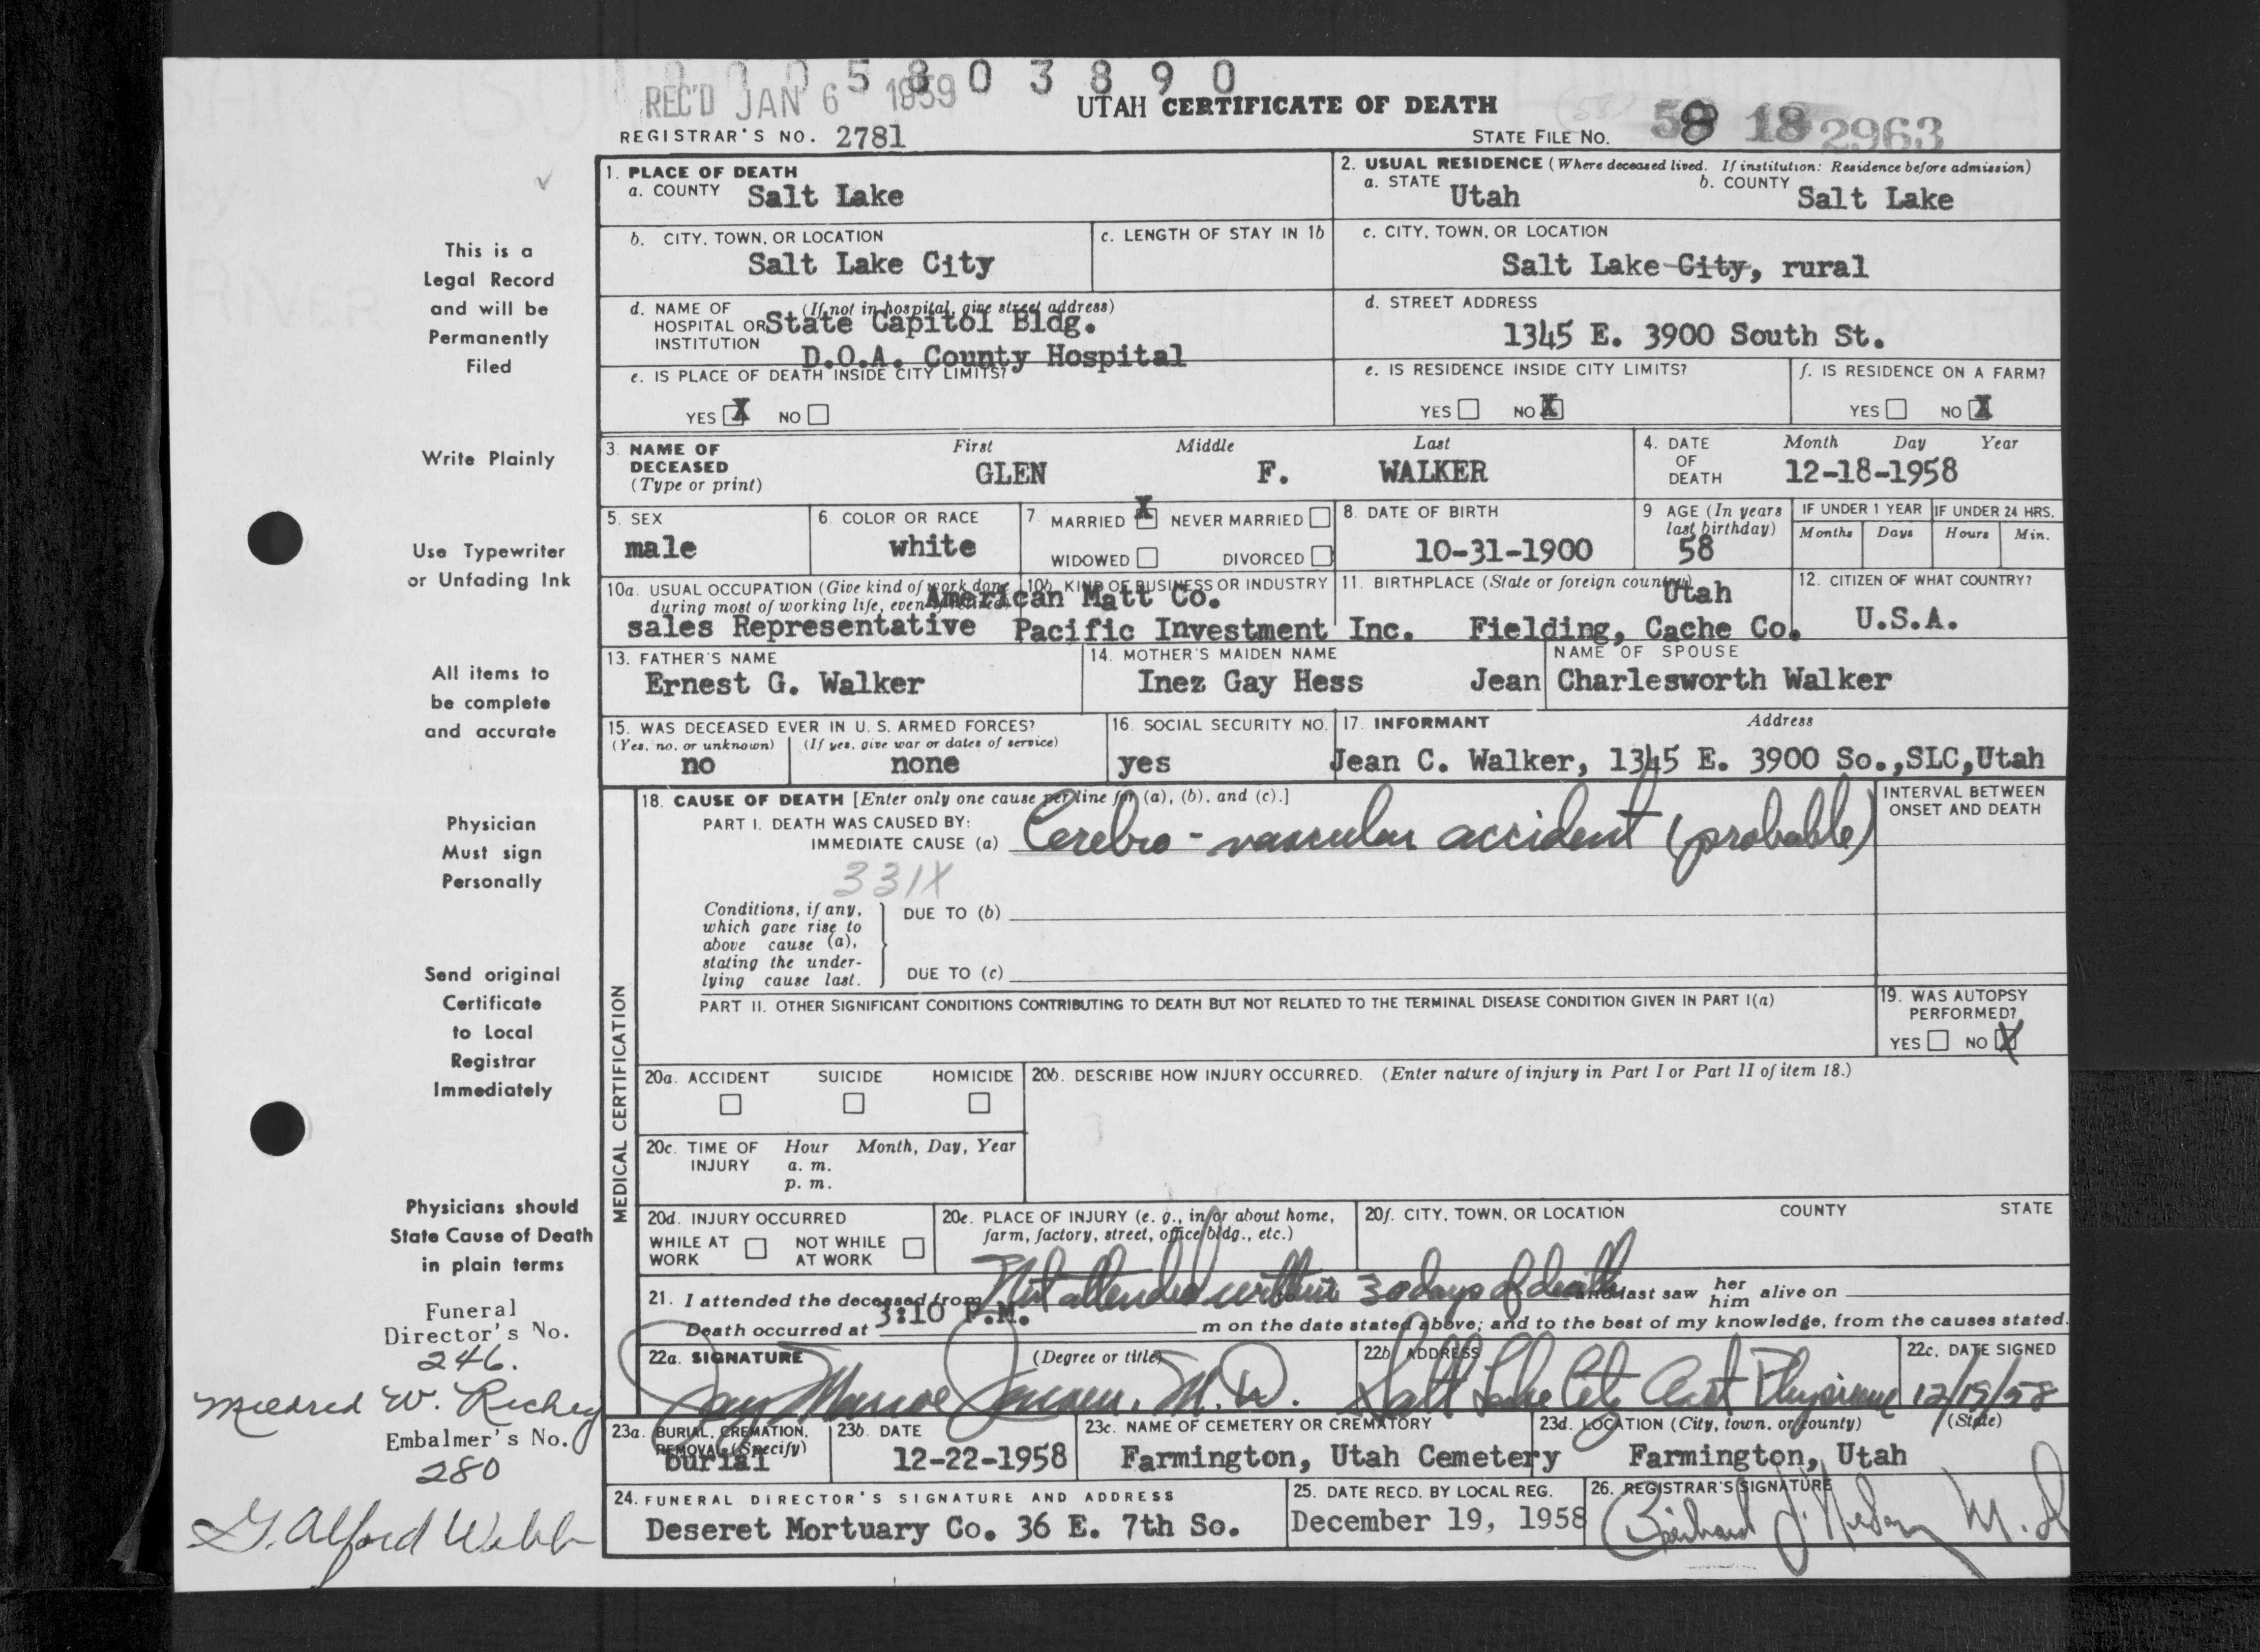 0 0 0 5 8 0 3 8 9 0
REC'D JAN 6 1959
UTAH CERTIFICATE OF DEATH
REGISTRAR'S NO. 2781
STATE FILE NO. 58 18 2963
This is a
Legal Record
and will be
Permanently
Filed
Write Plainly
Use Typewriter
or Unfading Ink
All items to
be complete
and accurate
Physician
Must sign
Personally
Send original
Certificate
to Local
Registrar
Immediately
Physicians should
State Cause of Death
in plain terms
Funeral
Director's No.
246.
Mildred W. Richey
Embalmer's No.
280
G. Alford Webb
1. PLACE OF DEATH
a. COUNTY Salt Lake
2. USUAL RESIDENCE (Where deceased lived. If institution: Residence before admission)
a. STATE Utah b. COUNTY Salt Lake
b. CITY, TOWN, OR LOCATION
Salt Lake City
c. LENGTH OF STAY IN 1b
c. CITY, TOWN, OR LOCATION
Salt Lake City, rural
d. NAME OF (If not in hospital, give street address)
HOSPITAL OR State Capitol Bldg.
INSTITUTION D.O.A. County Hospital
d. STREET ADDRESS
1345 E. 3900 South St.
e. IS PLACE OF DEATH INSIDE CITY LIMITS?
YES X NO
e. IS RESIDENCE INSIDE CITY LIMITS?
YES NO X
f. IS RESIDENCE ON A FARM?
YES NO X
3. NAME OF DECEASED (Type or print)
First Middle Last
GLEN F. WALKER
4. DATE OF DEATH
Month Day Year
12-18-1958
5. SEX
male
6. COLOR OR RACE
white
7. MARRIED X NEVER MARRIED
WIDOWED DIVORCED
8. DATE OF BIRTH
10-31-1900
9 AGE (In years last birthday)
58
IF UNDER 1 YEAR IF UNDER 24 HRS.
Months Days Hours Min.
10a. USUAL OCCUPATION (Give kind of work done during most of working life, even if retired)
sales Representative
10b. KIND OF BUSINESS OR INDUSTRY
American Matt Co.
Pacific Investment Inc.
11. BIRTHPLACE (State or foreign country)
Utah
Fielding, Cache Co.
12. CITIZEN OF WHAT COUNTRY?
U.S.A.
13. FATHER'S NAME
Ernest G. Walker
14. MOTHER'S MAIDEN NAME
Inez Gay Hess
NAME OF SPOUSE
Jean Charlesworth Walker
15. WAS DECEASED EVER IN U. S. ARMED FORCES?
(Yes, no, or unknown) (If yes, give war or dates of service)
no none
16. SOCIAL SECURITY NO.
yes
17. INFORMANT Address
Jean C. Walker, 1345 E. 3900 So.,SLC,Utah
MEDICAL CERTIFICATION
18. CAUSE OF DEATH [Enter only one cause per line for (a), (b), and (c).]
PART I. DEATH WAS CAUSED BY:
IMMEDIATE CAUSE (a) Cerebro-vascular accident (probable)
INTERVAL BETWEEN
ONSET AND DEATH
331X
Conditions, if any,
which gave rise to
above cause (a),
stating the under-
lying cause last.
DUE TO (b)
DUE TO (c)
PART II. OTHER SIGNIFICANT CONDITIONS CONTRIBUTING TO DEATH BUT NOT RELATED TO THE TERMINAL DISEASE CONDITION GIVEN IN PART I(a)
19. WAS AUTOPSY
PERFORMED?
YES NO X
20a. ACCIDENT SUICIDE HOMICIDE
20b. DESCRIBE HOW INJURY OCCURRED. (Enter nature of injury in Part I or Part II of item 18.)
20c. TIME OF INJURY Hour Month, Day, Year
a. m.
p. m.
20d. INJURY OCCURRED
WHILE AT WORK NOT WHILE AT WORK
20e. PLACE OF INJURY (e. g., in or about home,
farm, factory, street, office bldg., etc.)
20f. CITY, TOWN, OR LOCATION COUNTY STATE
21. I attended the deceased from Not attended within 30 days of death and last saw her him alive on
Death occurred at 3:10 P.M. m on the date stated above; and to the best of my knowledge, from the causes stated.
22a. SIGNATURE (Degree or title)
Jay Monroe Jensen, M.D.
22b. ADDRESS
Salt Lake City Asst Physician
22c. DATE SIGNED
12/19/58
23a. BURIAL, CREMATION, REMOVAL (Specify)
burial
23b. DATE
12-22-1958
23c. NAME OF CEMETERY OR CREMATORY
Farmington, Utah Cemetery
23d. LOCATION (City, town, or county) (State)
Farmington, Utah
24. FUNERAL DIRECTOR'S SIGNATURE AND ADDRESS
Deseret Mortuary Co. 36 E. 7th So.
25. DATE RECD. BY LOCAL REG.
December 19, 1958
26. REGISTRAR'S SIGNATURE
M.D.